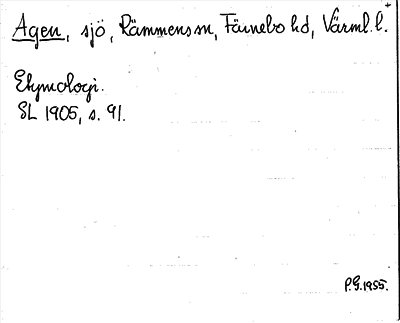 Agen, sjö, Rämmens sn, Färnebo hd, Värml. l.
Etymologi.
SL 1905, s. 91.
P.G. 1955.